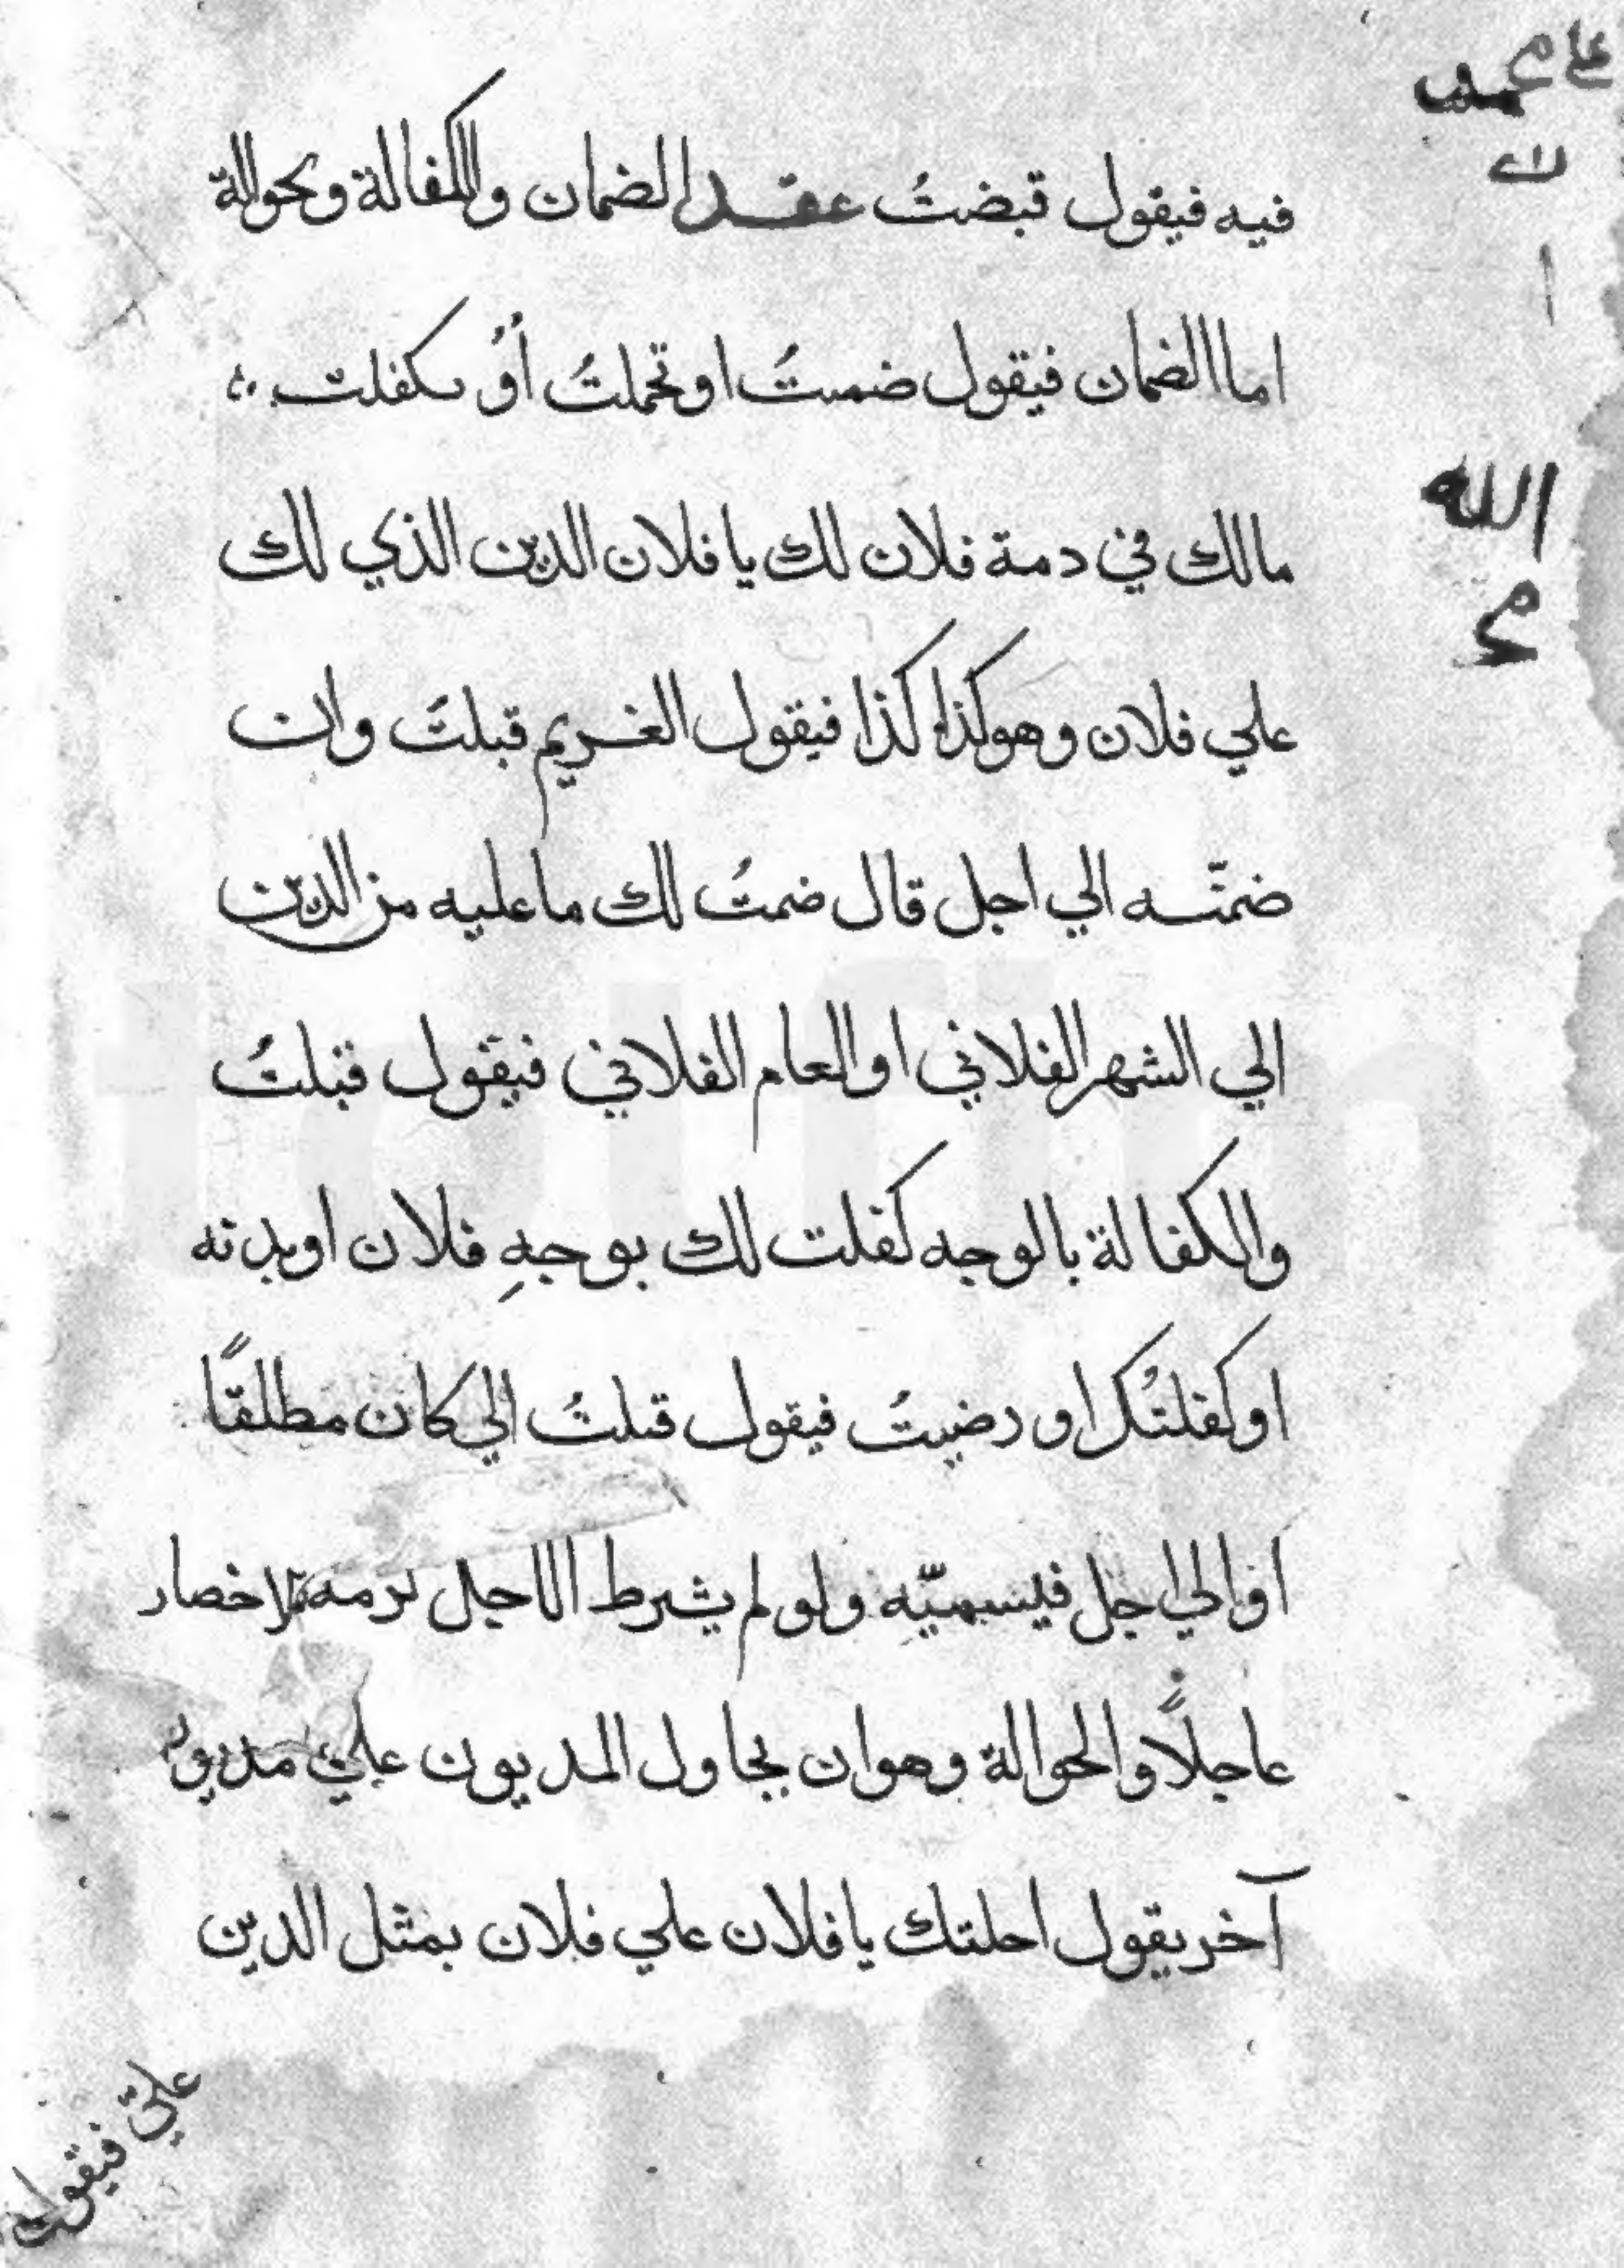 فيه فيقول قبضتُ عقد الضمان والكفالة وبحوالة
اما الضمان فيقول ضمنتُ او تحملتُ أوْ تكفلت
مالك في دمة فلان لك يا فلان الدين الذي لك
علي فلان وهو كذا كذا فيقول الغريم قبلتُ وان
ضمنّه الي اجل قال ضمنتُ لك ما عليه من الدين
الي الشهر الفلاني او العام الفلاني فيقول قبلتُ
والكفالة بالوجه كفلت لك بوجهِ فلان او بدنه
او كفلتُك او رضيتُ فيقول قبلتُ الي كان مطلقًا
او الي اجل فيسميّه ولو لم يشرط الاجل لزمه الاحضار
عاجلًا والحوالة وهو ان يحاول المديون علي مديون
آخر يقول احلتك يا فلان علي فلان بمثل الدين
عليّ فيقول
علي محمد
الله